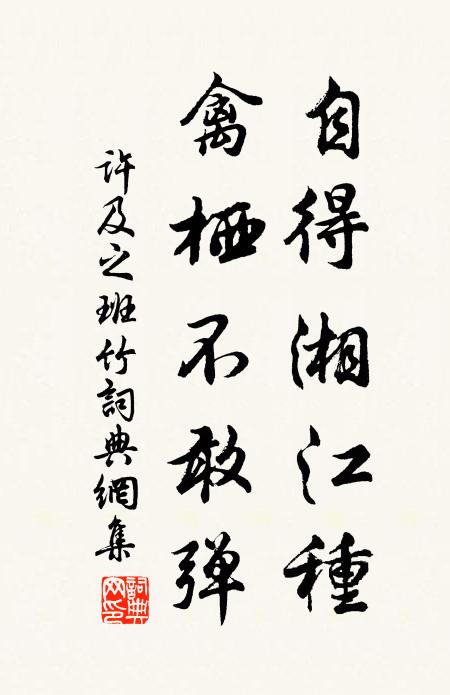 自得湘江種
禽栖不敢弹
許及之班竹詞典網集
詞典网印